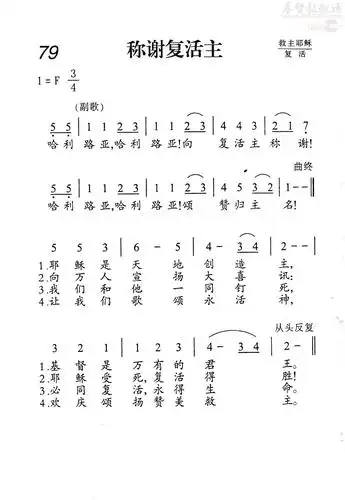 79
称谢复活主
救主耶稣
复活
1=F 3/4
(副歌)
5 5 | 1 1 2 3 | 1 1 2 3 | 4 4 3 | 2 1 7
哈利 路亚,哈利 路亚!向 复活主 称 谢!
曲终
5 5 | 1 1 2 3 | 1 1 2 3 | 4 5 3 2 | 1 - - ‖
哈利 路亚,哈利 路亚!颂 赞归主 名!
5 5 5 | 6 - 1 | 5 - 4 | 3 4 2
1.耶稣是 天 地 创 造 主,
2.向万人 宣 扬 大 喜 讯:
3.我们和 他 一 同 钉 死,
4.让我们 歌 颂 永 活 神,
从头反复
3 2 1 | 4 - 3 | 2 - 4 | 3 4 2 | 2 - -
1.基督是 万 有 的 君 王。
2.耶稣受 死,复 活 得 胜!
3.必同复 活,永 得 生 命。
4.欢庆颂 扬 赞 美 救 主。